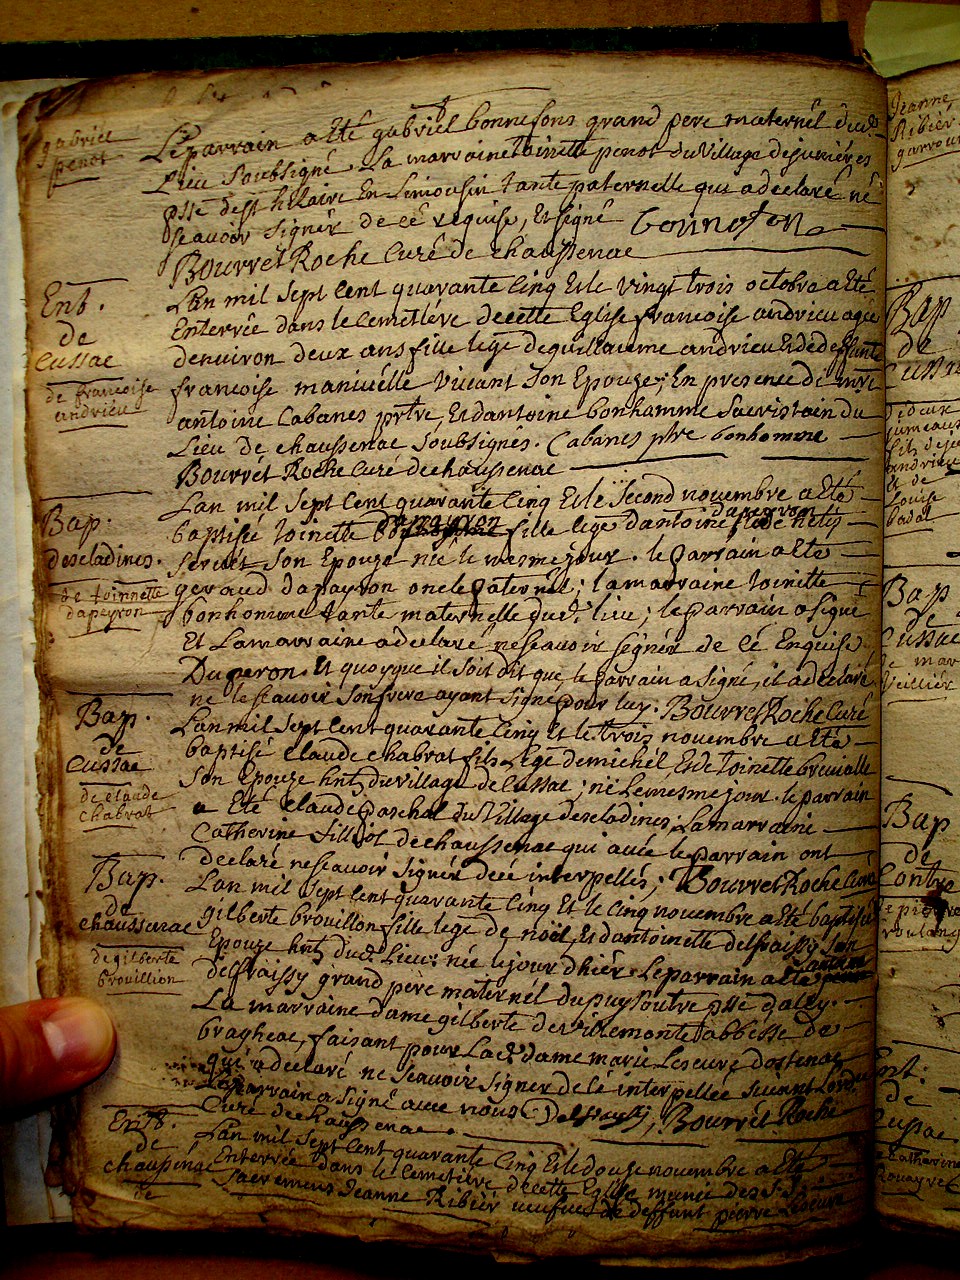 gabriel
penot
Le parrain a eté gabriel bonnefons grand pere maternel dud
Lieu soubsigné. La marraine toinette penot du village dejuniéres
psse de st hilaire En Limousin tante paternelle qui a declaré né
sçavoir signér de cé requise, Et signé Bonnefon
Bourret Roche Curé de chaussenac
Ent.
de
Cussac
de francoise
andrieu
Lan mil sept Cent quarante Cinq Et le vingt trois octobre a eté
Enterrée dans le Cemetiére de cette Eglise francoise andrieu agée
denviron deux ans fille lege de guillaume andrieu Et de deffunte
francoise maniuélle vivant son Epouze; En presence de mre
antoine Cabanes prtre, Et dantoine bonhomme sacristain du
Lieu de chaussenac soubsignés. Cabanes ptre bonhomme
Bourret Roche Curé de chaussenac
Bap.
deseladines.
de toinnette
dapeyron
Lan mil sept Cent quarante Cinq Et le second novembre a eté
dapeyron
baptisée toinette fille lege dantoine Et de helis
son Epouze née le mesme jour. le parrain a eté
geraud dapayron oncle paternel; la marraine toinette
bonhomme tante maternelle dud. lieu; le parrain a signé
Et La marraine a declaré ne scavoir signér de cé Enquise
Daperon. Et quoyque il soit dit que le parrain a signé, il a declaré
ne le scavoir son frere ayant signé pour luy. Bourret Roche Curé
Bap.
de
Cussac
de claude
chabrat
Lan mil sept Cent quarante Cinq Et le trois novembre a eté
baptisé Claude chabrat fils lege demichel, Et de toinette breuialle
son Epouze hnts du village de Cussac; né Le mesme jour. le parrain
a Eté Claude paschal du village deseladines; La marraine
Catherine fillol de chaussenac qui avec le parrain ont
declaré ne scavoir signér de cé interpellés; Bourret Roche Curé
Bap.
de
chaussenac
de gilberte
brouillion
Lan mil sept Cent quarante Cinq Et le Cinq novembre a eté baptisée
gilberte brouillon fille lege de noël, Et dantoinette delfraissy son
Epouze hnts dud. Lieu: née le jour dhiér. Le parrain a eté
delfraissy grand pére maternél du puy soutre psse dally.
La marraine dame gilberte de villemonte abbesse de
bragheac, faisant pour La dame marie Lescure dostenac
qui a declaré ne scavoir signer de cé interpellée suivant Lord
Le parrain a signé avec nous. Delfraissy, Bourret Roche
Curé de chaussenac.
Entt.
de
chaussenac
de
Lan mil sept Cent quarante Cinq Et le douze novembre a eté
Enterrée dans le Cemetiére de cette Eglise munie des Sts
sacremens Jeanne Ribiér veufue de deffunt pierre
Jeanne
Ribiér
Bap
de
Cussac
deux
jumeaux
fils de
andrieu
et de
Louise
badal
Bap
de
Cussac
de mar
Veillier
Bap
de
Contre
Ent:
de
Cussac.
Catharine